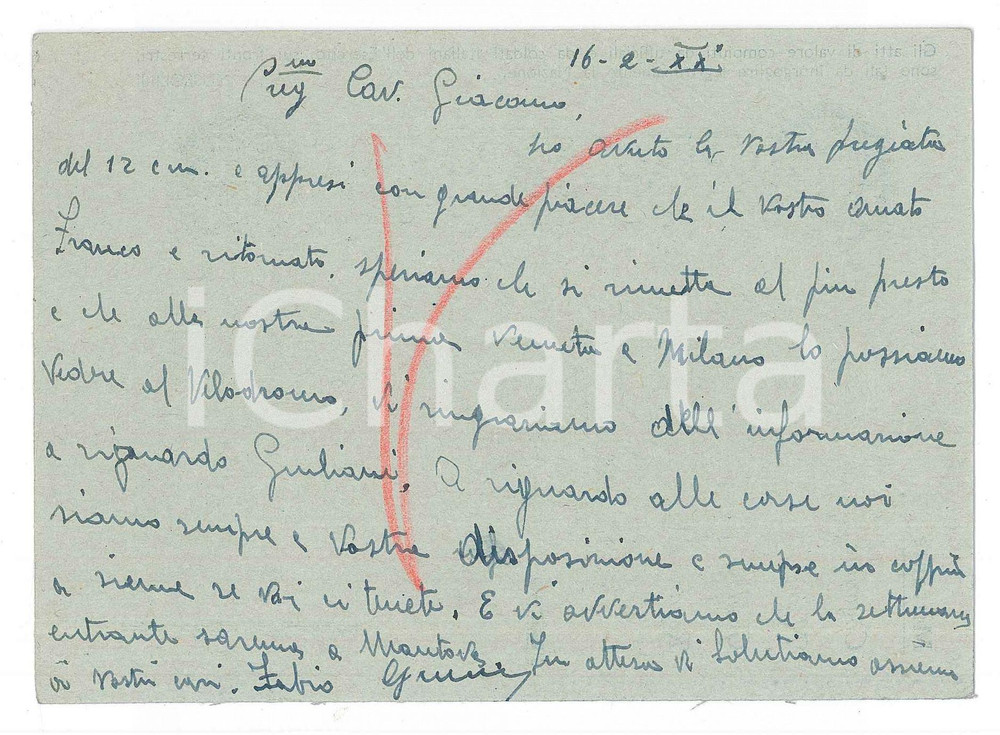 16-2-XXI
Sig.mo Cav. Giacomo,
ho avuto la vostra pregiata
del 12 c.m. e appresi con grande piacere che il vostro amato
Franco e ritornato, speriamo che si rimetta al piu presto
e che alla nostra prima venuta a Milano lo possiamo
vedere al Velodromo, vi ringraziamo dell'informazione
a riguardo Giuliani. A riguardo alle corse noi
siamo sempre a vostra disposizione e sempre in coppia
a sieme se voi ci tenete. E vi avvertiamo che la settimana
entrante saremo a Mantova. In attesa vi salutiamo assieme
ai vostri cari. Fabio
iCharta